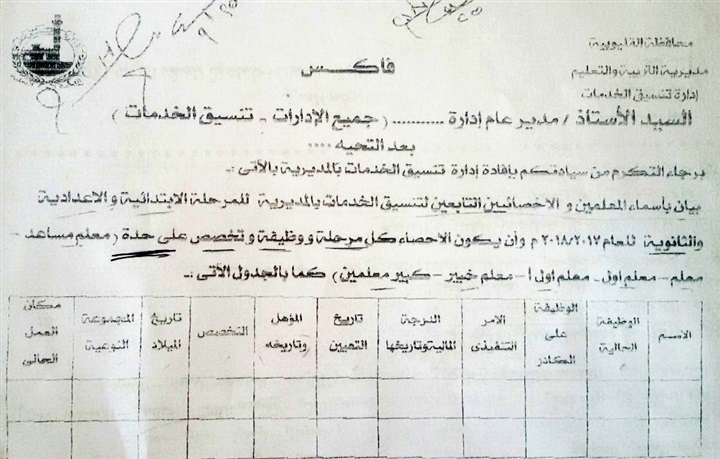 محافظة القليوبية
مديرية التربية والتعليم
إدارة تنسيق الخدمات
فاكس
السيد الأستاذ / مدير عام إدارة .......... ( جميع الإدارات - تنسيق الخدمات )
بعد التحيه ....
برجاء التكرم من سيادتكم بإفادة إدارة تنسيق الخدمات بالمديرية بالآتى :-
بيان بأسماء المعلمين و الاخصائيين التابعين لتنسيق الخدمات بالمديرية للمرحلة الابتدائية و الاعدادية
والثانوية للعام ٢٠١٨/٢٠١٧ م وأن يكون الاحصاء كل مرحلة ووظيفة و تخصص على حدة ( معلم مساعد -
معلم - معلم اول - معلم اول أ - معلم خبير - كبير معلمين ) كما بالجدول الآتى :-
الاسم
الوظيفة الحالية
الوظيفة على الكادر
الامر التنفيذى
الدرجة المالية وتاريخها
تاريخ التعيين
المؤهل وتاريخه
التخصص
تاريخ الميلاد
المجموعة النوعية
مكان العمل الحالى